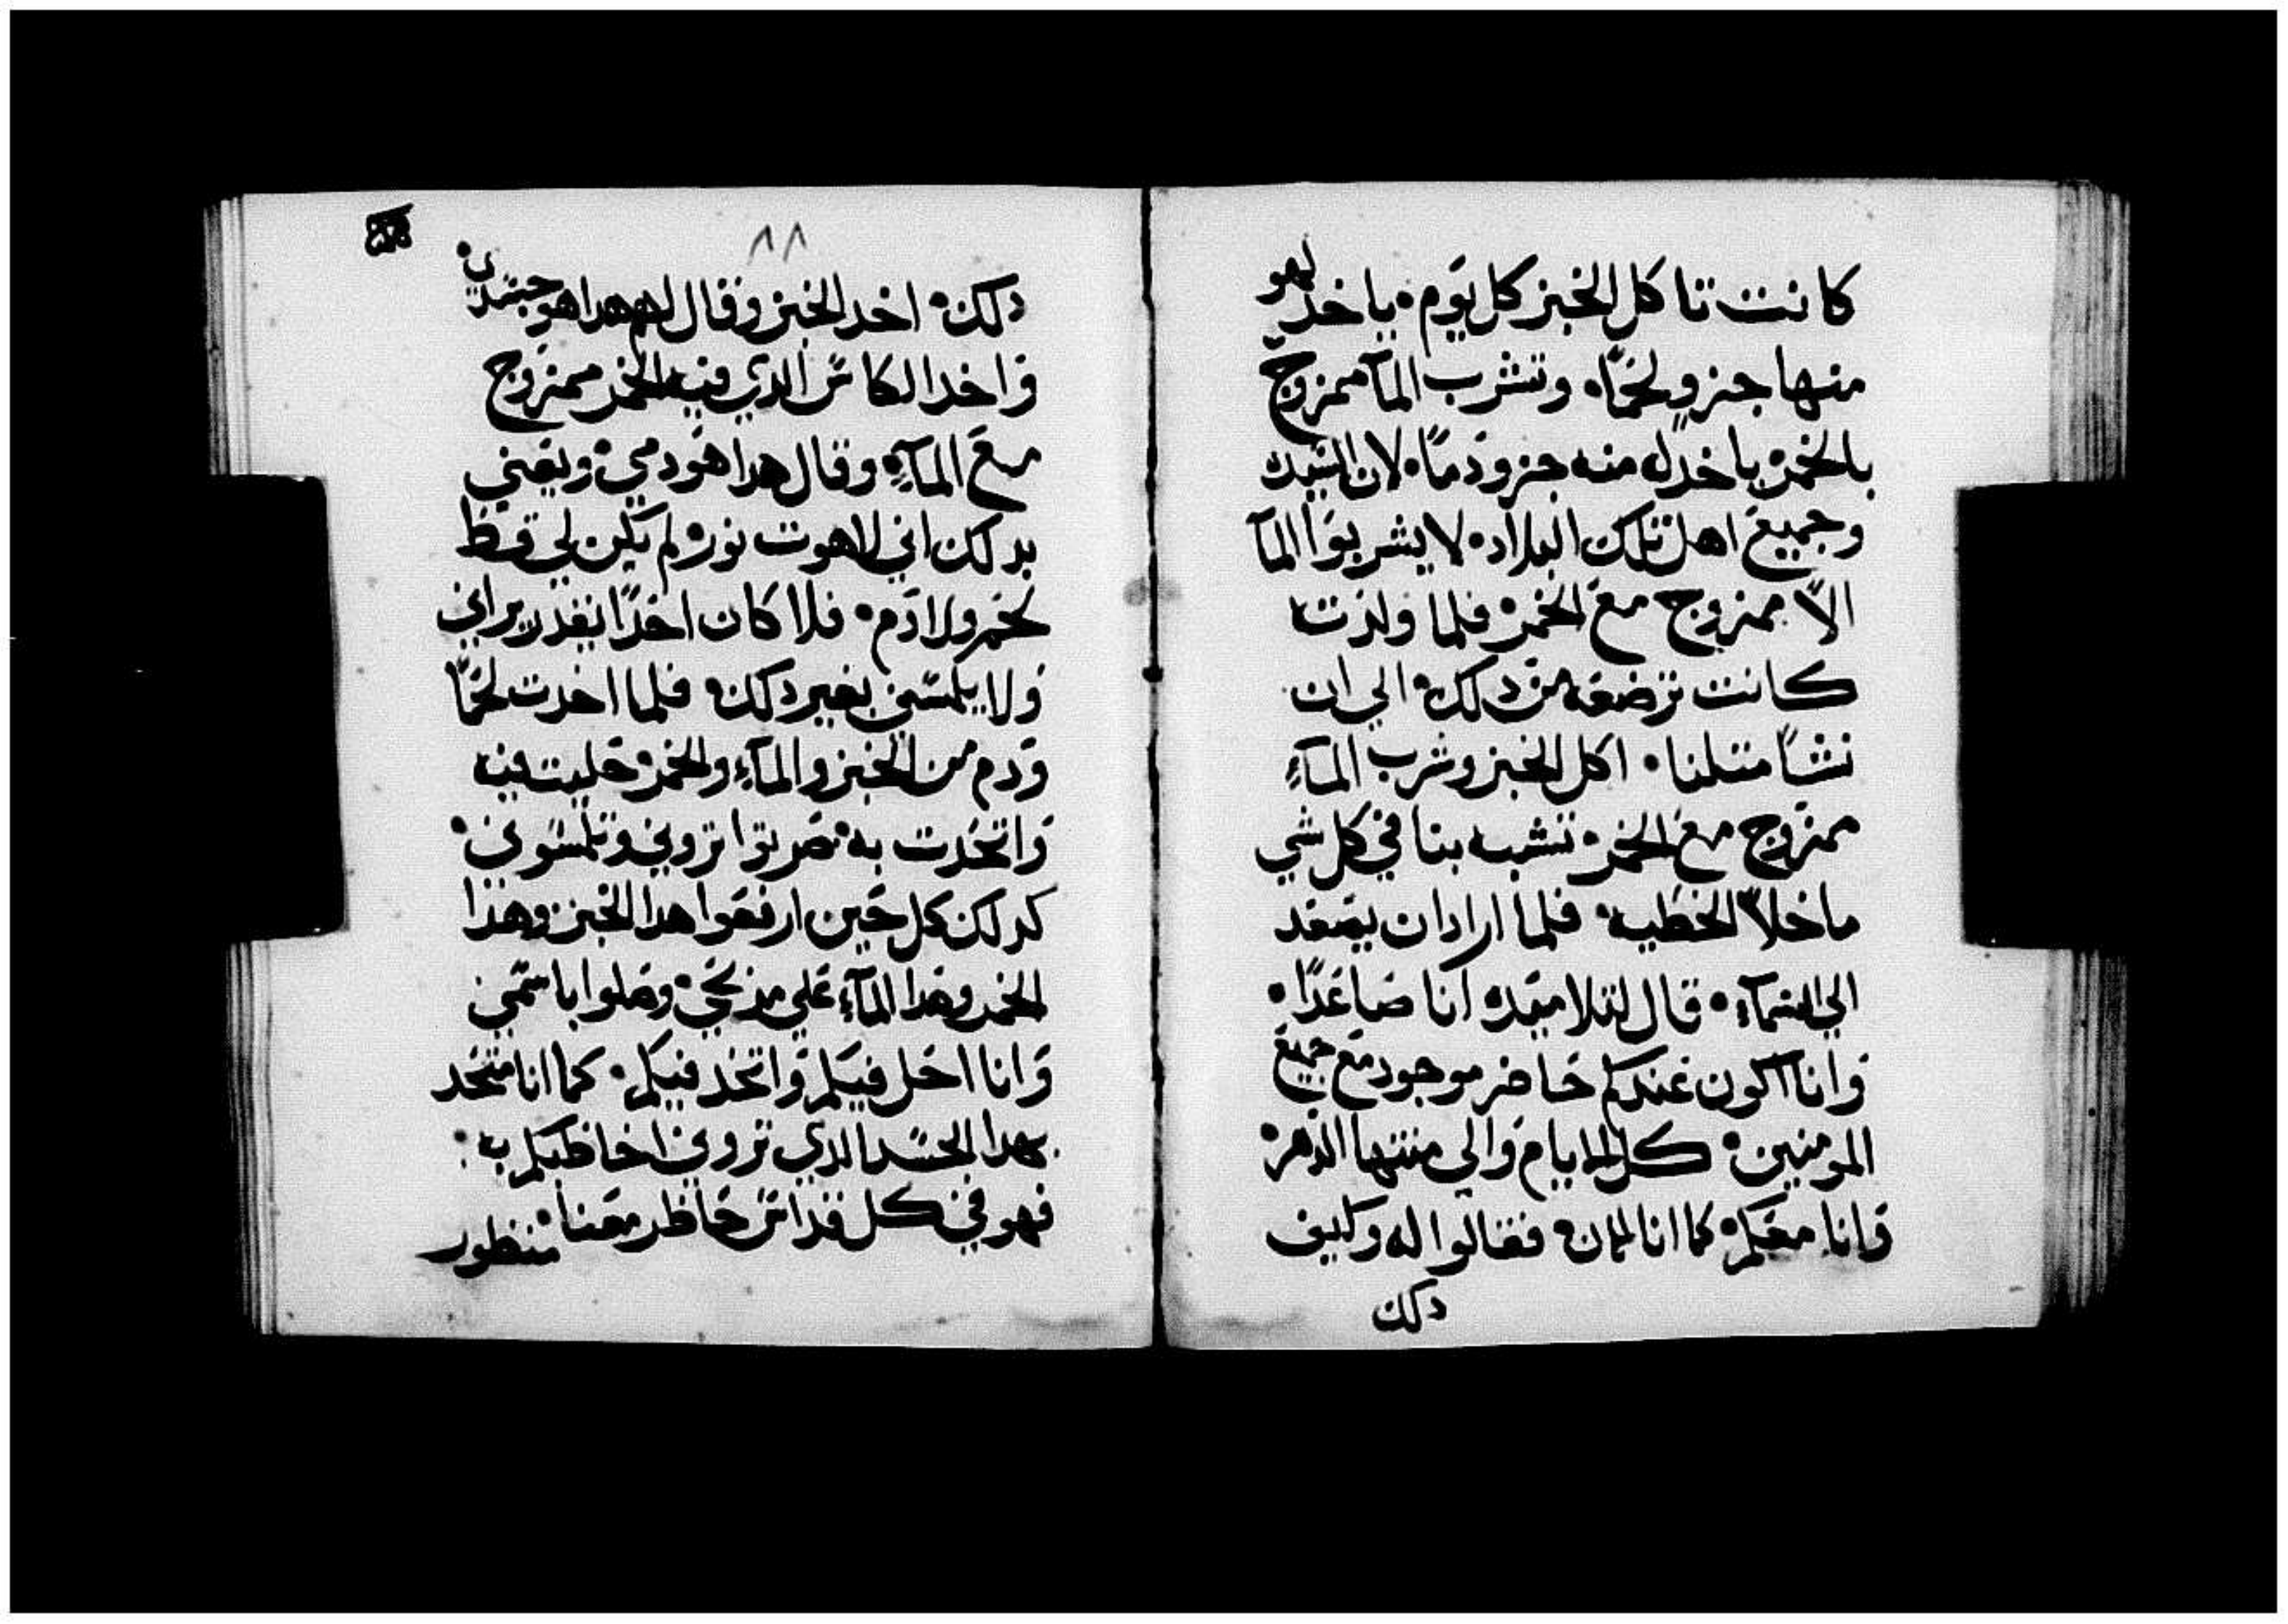 كانت تاكل الخبز كل يوم • ياخد لهو
منها جزو لحمًا • وتشرب المآ ممزوج
بالخمر • ياخد له منه جزو دمًا • لان السيده
وجميع اهل تلك البلاد • لا يشربوا المآ
الاّ ممزوج مع الخمر • فلما ولدته
كانت ترضعه من دلك • الي ان
نشا متلنا • اكل الخبز وشرب المآءِ
ممزوج مع الخمر • تشبه بنا في كل شي
ما خلا الخطيه • فلما اراد ان يصعد
الي السمآء • قال لتلاميده انا صاعدًا •
وانا اكون عندكم حاضر موجود مع جميع
المومنين • كل الايام والي منتها الدهر •
وانا معكم • كما انا الان • فقالوا له وكيف
دلك
٨٨
دلك • اخد الخبز وقال لهم هدا هو جسدي •
واخد الكاس الدي فيه الخمر ممزوج
مع المآءِ • وقال هدا هو دمي • ويعني
بدلك اني لاهوت نور • لم يكن لي قط
لحم ولا دم • فلا كان احدًا يقدر يراني
ولا يلمسني بغير دلك • فلما اخدت لحمًا
ودم من الخبز والمآءِ والخمر • حليت فيه
واتحدت به • صرتوا تروني وتلمسوني •
كدلك كل حين ارفعوا هدا الخبز وهدا
الخمر وهدا المآءِ علي مدبحي • وصلوا باسمي
وانا احل فيكم واتحد فيكم • كما انا متحد
بهدا الجسد الدي تروني اخاطبكم به •
فهو في كل قداس حاظر معنا • منظور